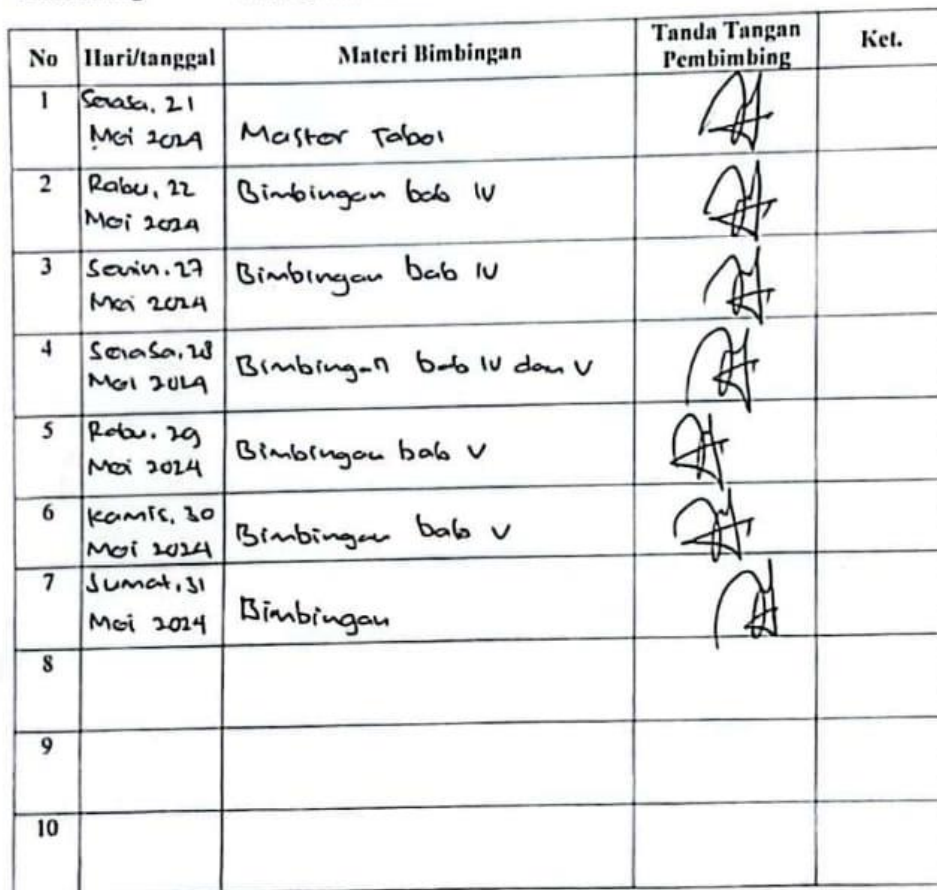 No Hari/tanggal Materi Bimbingan Tanda Tangan Pembimbing Ket.
1 Selasa, 21
Mei 2024 Master Tabel
2 Rabu, 22 Bimbingan bab IV
Mei 2024
3 Senin, 27 Bimbingan bab IV
Mei 2024
4 Selasa, 28 Bimbingan bab IV dan V
Mei 2024
5 Rabu, 29
Mei 2024 Bimbingan bab V
6 Kamis, 30
Mei 2024 Bimbingan bab V
7 Jumat, 31
Mei 2024 Bimbingan
8
9
10